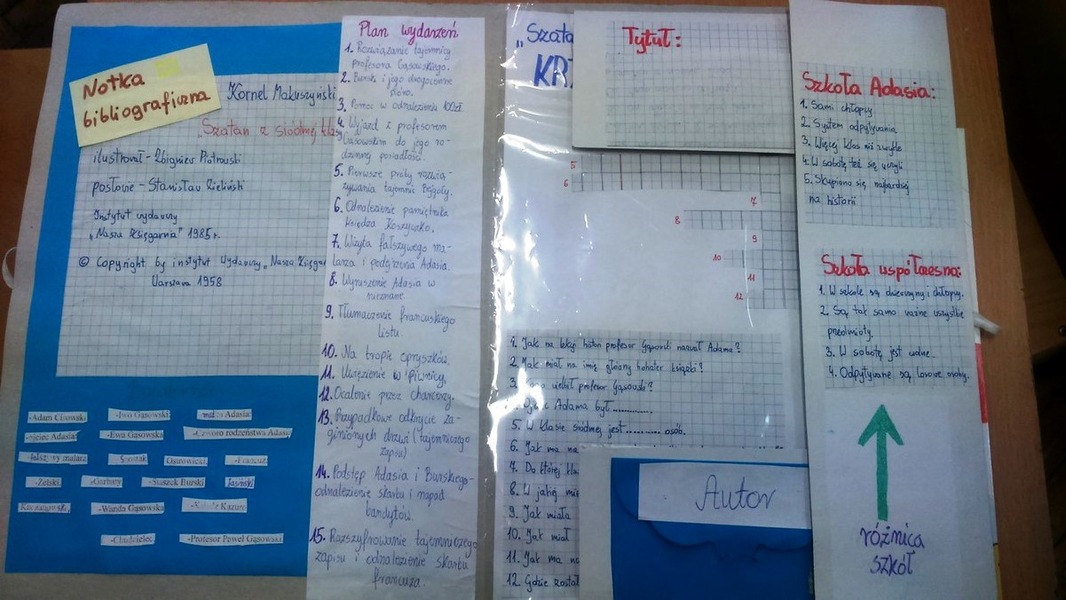 Notka
bibliograficzna
Kornel Makuszyński
„Szatan z siódmej klas
ilustrował - Zbigniew Piotrowski
posłowie - Stanisław Zieliński
Instytut wydawniczy
„Nasza Księgarnia" 1985r.
© Copyright by instytut Wydawniczy „Nasza Księgar
Warszawa 1958
-Adam Cisowski
-Iwo Gąsowski
Adasia
-ojciec Adasia
-Ewa Gąsowska
-Czworo rodzeństwa Adasia
-fałszywy malarz
Ostrowicki
-Żelski
-Staszek Burski
Jasiński
-Wanda Gąsowska
-Chudzielec
-Profesor Paweł Gąsowski
Plan wydarzeń
1. Rozwiązanie tajemnicy
profesora Gąsowskiego.
2. Burski i jego drogocenne
pióro.
3. Pomoc w odnalezieniu 100zł.
4. Wyjazd z profesorem
Gąsowskim do jego ro-
dzinnej posiadłości.
5. Pierwsze próby rozwią-
zywania tajemnic Bejgoły.
6. Odnalezienie pamiętnika
księdza Koszyczko.
7. Wizyta fałszywego ma-
larza i podejrzenia Adasia.
8. Wyruszenie Adasia w
nieznane.
9. Tłumaczenie francuskiego
listu
10. Na tropie opryszków.
11. Uwięzienie w piwnicy.
12. Ocalenie przez
13. Przypadkowe odkrycie za-
ginionych drzwi (tajemniczego
zapisu)
14. Podstęp Adasia i Burskiego-
odnalezienie skarbu i napad
bandytów.
15. Rozszyfrowanie tajemniczego
zapisu i odnalezienie skarbu
francuza.
„Szata
KRZ
5
6
7
8
9
10
11
12
1. Jak na lekcji histori profesor Gąsowski nazwał Adama?
2. Jak miał na imię główny bohater książki?
3. Kogo uczył profesor Gąsowski?
Ojciec Adama był............
5. W klasie siódmej jest.......... osób.
6. Jak ma na
7. Do której kla
8. W jakiej mie
9. Jak miała
10. Jak miał
11. Jak ma na
12. Gdzie został
Tytuł:
Autor
Szkoła Adasia:
1. Sami chłopcy
2. System odpytywania
3. Więcej klas niż zwykle
4. W sobotę też się uczyli
5. Skupiono się najbardziej
na historii
Szkoła współczesna:
1. W szkole są dziewczyny i chłopcy.
2. Są tak samo ważne wszystkie
przedmioty.
3. W sobotę jest wolne.
4. Odpytywane są losowe osoby.
różnica
szkół